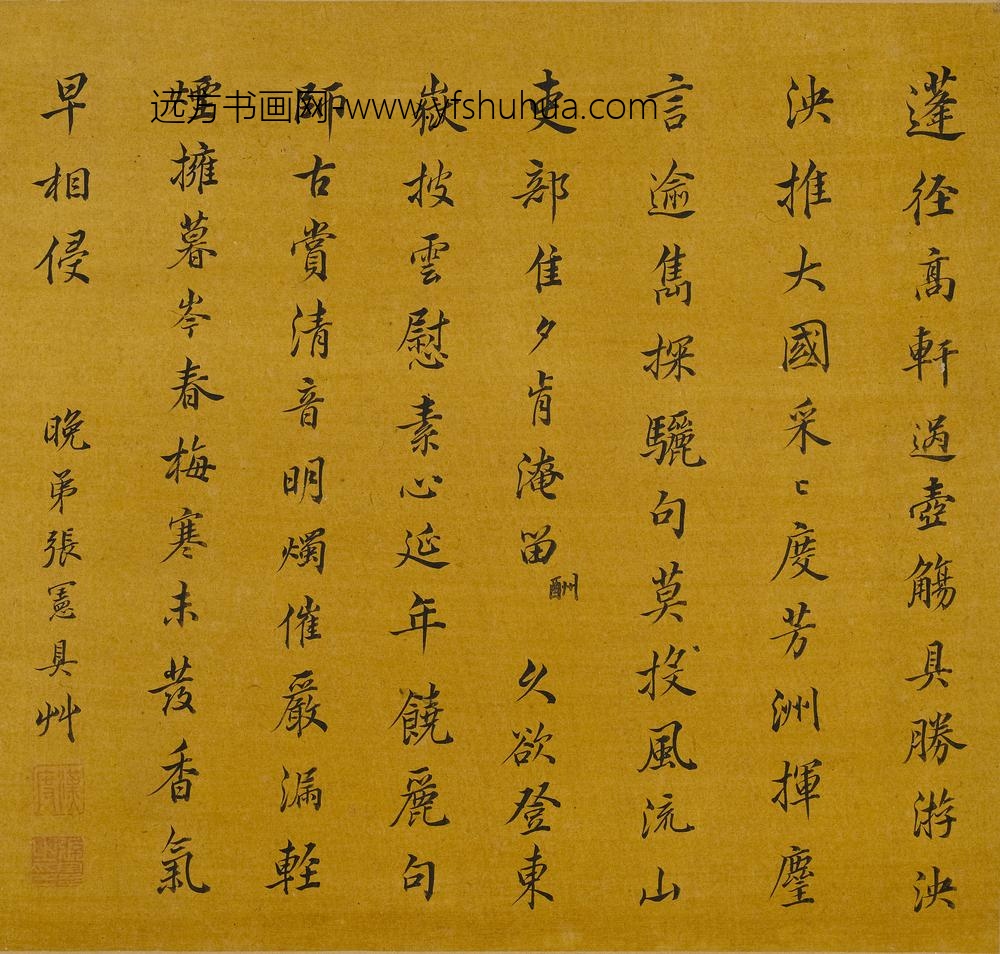 蓬径高軒過壺觴具勝游泱
泱推大國采〻度芳洲揮麈
言逾雋探驪句莫投風流山
吏部隹夕肯淹留酬久欲登東
嶽披雲慰素心延年饒麗句
師古賞清音明燭催嚴漏輕
擁暮岑春梅寒未發香氣
早相侵
晚弟張憲具艸
远方书画网www.yfshuhua.com